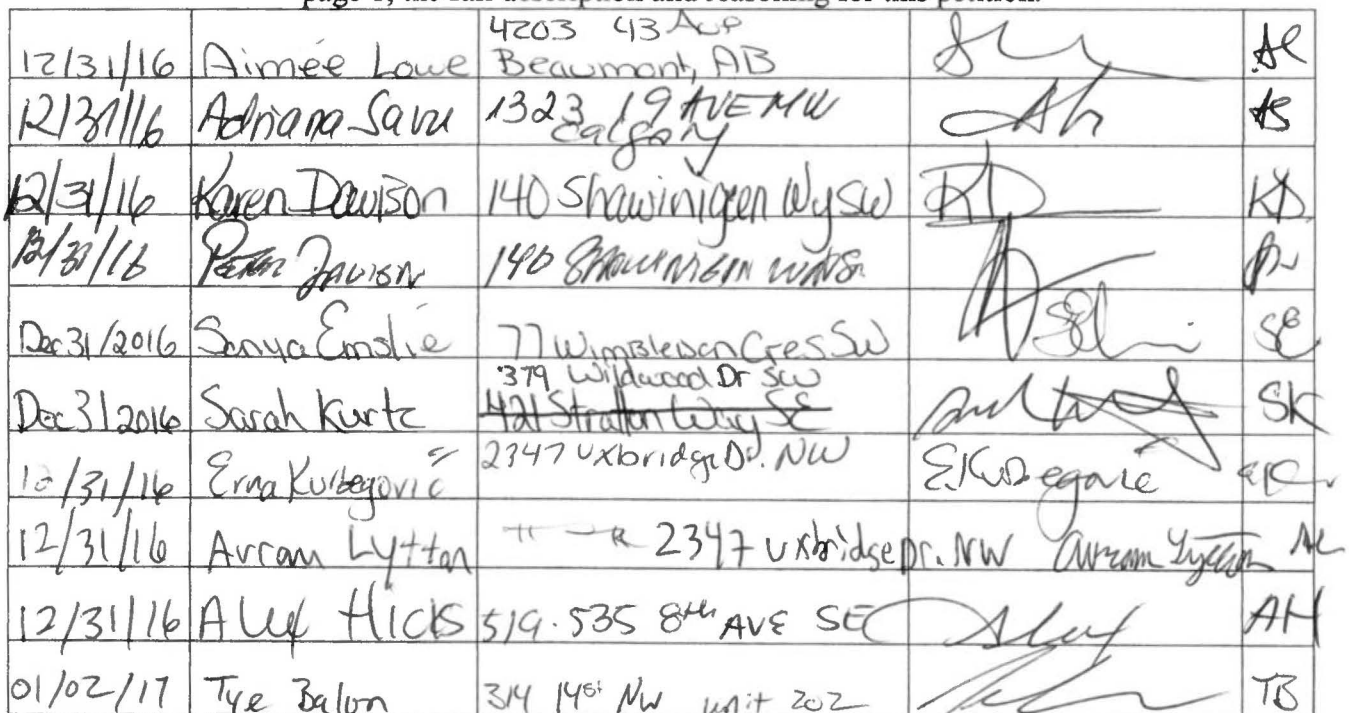 page 1, the full description and reasoning for this petition.
12/31/16 Aimée Lowe 4203 43 Ave Beaumont, AB AL
12/31/16 Adriana Savu 1323 19 AVE NW Calgary AS
12/31/16 Karen Davison 140 Shawinigan Wy SW KD KD
12/31/16 Peter Davison 140
Dec 31/2016 Sonya Emslie 77 Wimbledon Cres SW SE
379 Wildwood Dr SW
Dec 31 2016 Sarah Kurtz 421 Stratton Way SE SK
12/31/16 Erna Kurbegović 2347 Uxbridge Dr. NW E.Kurbegović
12/31/16 Avram Lytton 2347 Uxbridge Dr. NW Avram Lytton AL
12/31/16 Alex Hicks 519. 535 8th AVE SE Alex AH
01/02/17 Tye Balon 314 14st NW unit 202 TB